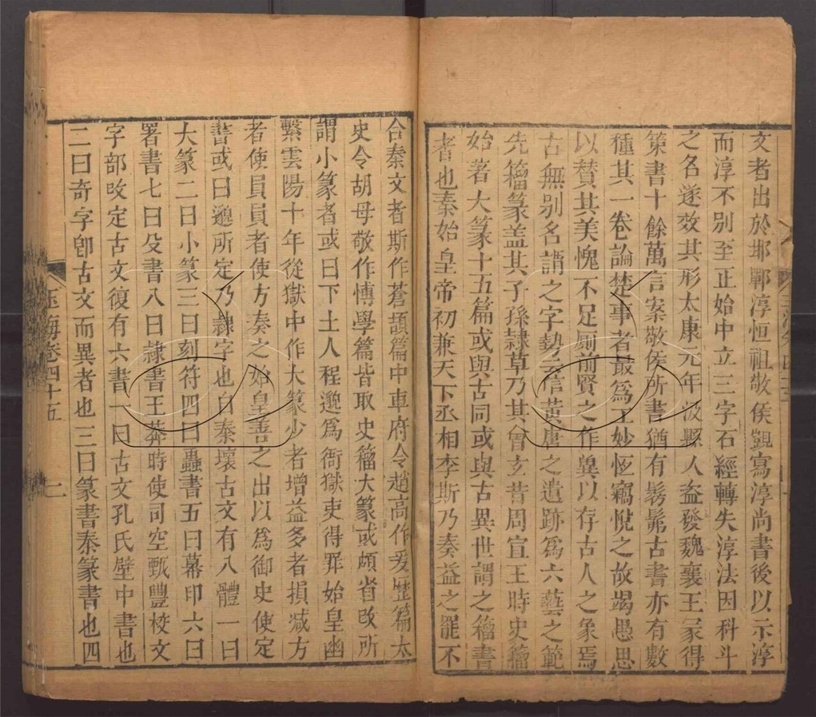 文者出於邯鄲淳恒祖敬侯覬寫淳尚書後以示淳
而淳不別至正始中立三字石經轉失淳法因科斗
之名遂效其形太康元年汲縣人盗發魏襄王冢得
策書十餘萬言案敬侯所書猶有髣髴古書亦有數
種其一卷論楚事者最爲工妙恆竊悅之故竭愚思
以賛其美愧不足厠前賢之作兾以存古人之象焉
古無别名謂之字勢云信黄唐之遺跡爲六藝之範
先籀篆盖其子孫隷草乃其曾玄昔周宣王時史籀
始著大篆十五篇或與古同或與古異世謂之籀書
者也秦始皇帝初兼天下丞相李斯乃奏益之罷不
合秦文者斯作蒼頡篇中車府令趙高作爰歴篇太
史令胡母敬作博學篇皆取史籀大篆或頗省改所
謂小篆者或曰下土人程邈爲衙獄吏得罪始皇幽
繫雲陽十年從獄中作大篆少者增益多者損减方
者使員員者使方奏之始皇善之出以爲御史使定
書或曰邈所定乃隷字也自秦壞古文有八體一曰
大篆二曰小篆三曰刻符四曰蟲書五曰摹印六曰
署書七曰殳書八曰隷書王莽時使司空甄豐校文
字部改定古文復有六書一曰古文孔氏壁中書也
二曰奇字卽古文而異者也三曰篆書秦篆書也四
玉海卷四十五
二